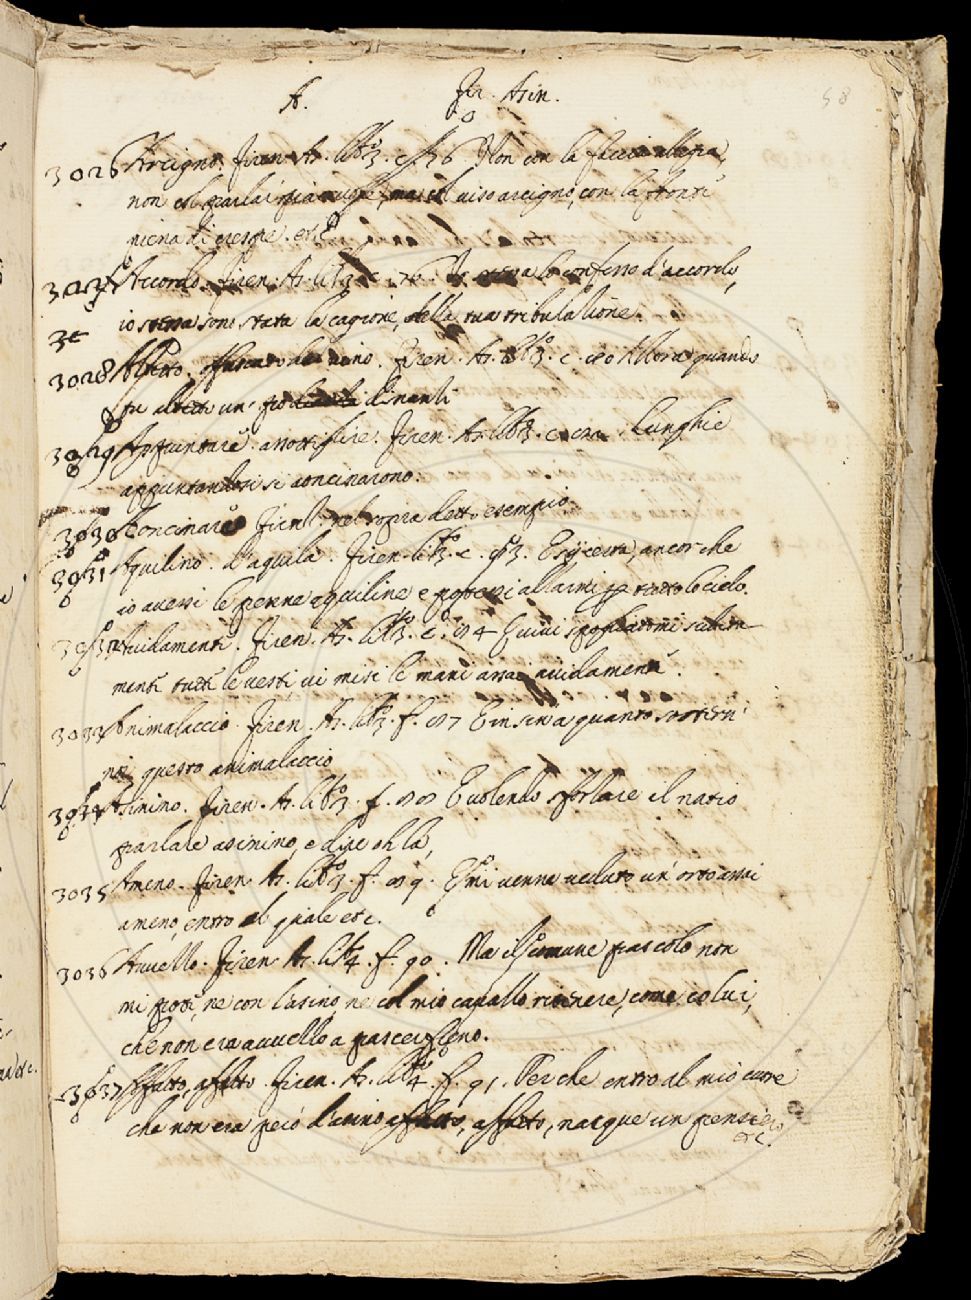 58
A. Fir. Asin.
3026 Arcigno. Firen. As. lib.º 3. c. 76. Non con la faccia allegra,
non col parlar piacevole, ma col viso arcigno, con la fronte
piena di crespe. etc.
3027 Accordo. Firen. As. lib. 3. c. 76. Io lo confesso d'accordo,
io stessa sono stata la cagione, della tua tribulazione.
3028 . Firen. As. lib.º 3. c. 80 Allora quando
un dinanzi
3029 Appuntare. Firen. As. lib.º 3. c. L'unghie
appuntandosi si aoncinarono.
3030 Aoncinare. Firen. nel sopra detto esempio.
3031 Aquilino. d'aquila. Firen. lib.º 3. c. 83. E s'i' cerca, ancor che
io avessi le penne aquiline e potessi alzarmi per tutto lo cielo.
3032 Avidamente. Firen. As. lib.º 3. c. 84 Quivi spogliatomi subita-
mente tutte le vesti, vi misi le mani assai avidamente.
3033 Animalaccio. Firen. As. lib.º 3. f. 87 E insin a quanto
noi questo animalaccio
3034 Asinino. Firen. As. lib.º 3. f. 88 E volendo sforzare il natio
parlare asinino, e dire oh là,
3035 Ameno. Firen. As. lib.º 3. f. 89. E mi venne veduto un orto assai
ameno, entro al quale etc.
3036 Avvezzo. Firen. As. lib. 4. f. 90. Ma il comune pascolo non
mi potè, ne con l'asino, ne col mio cavallo ritenere, come colui,
che non era avvezzo a pascer fieno.
3037 Affatto, affatto. Firen. As. lib.º 4. f. 91. Perche entro al mio cuore
che non era però d'asino affatto, affatto, nacque un pensiero
etc.